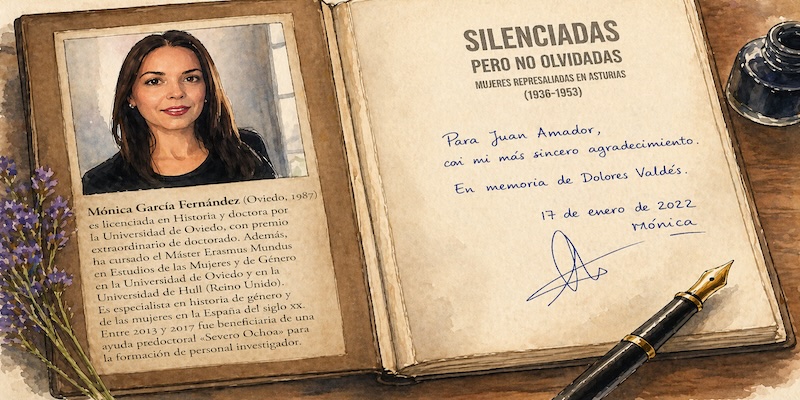 Mónica García Fernández (Oviedo, 1987)
es licenciada en Historia y doctora por
la Universidad de Oviedo, con premio
extraordinario de doctorado. Además,
ha cursado el Máster Erasmus Mundus
en Estudios de las Mujeres y de Género
en la Universidad de Oviedo y en la
Universidad de Hull (Reino Unido).
Es especialista en historia de género y
de las mujeres en la España del siglo XX.
Entre 2013 y 2017 fue beneficiaria de una
ayuda predoctoral «Severo Ochoa» para
la formación de personal investigador.
SILENCIADAS
PERO NO OLVIDADAS
MUJERES REPRESALIADAS EN ASTURIAS
(1936-1953)
Para Juan Amador,
coi mi más sincero agradecimiento.
En memoria de Dolores Valdés.
17 de enero de 2022
Mónica